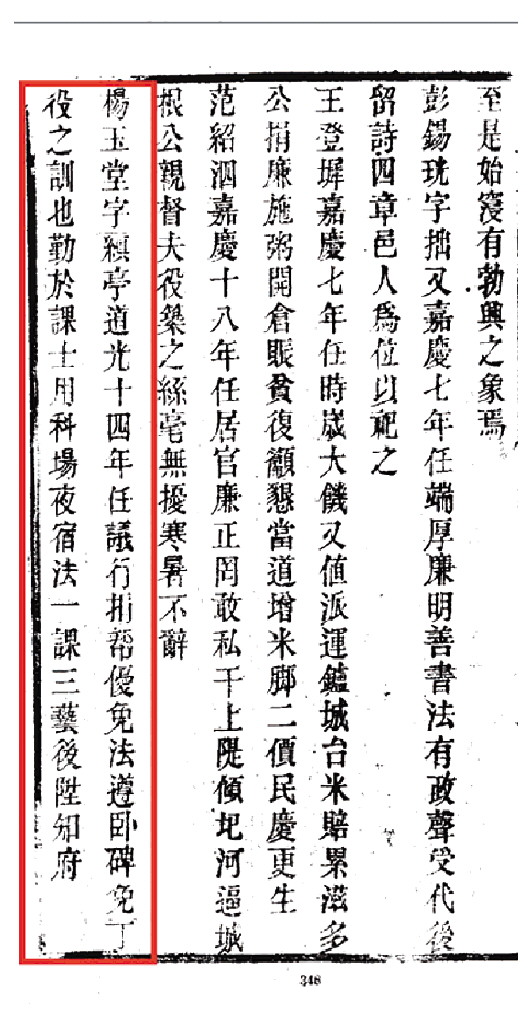 至是始寖有勃興之象焉
彭錫珖字拙又嘉慶七年任端厚廉明善書法有政聲受代後
留詩四章邑人爲位以祀之
王登墀嘉慶七年任時歲大饑又值派運鑪城台米賠累滋多
公捐廉施粥開倉賑貧復籲懇當道增米腳二價民慶更生
范紹泗嘉慶十八年任居官廉正罔敢私干上隄傾圮河逼城
根公親督夫役築之絲毫無擾寒暑不辭
楊玉堂字穎亭道光十四年任議行捐帮優免法遵卧碑免丁
役之訓也勤於課士用科場夜宿法一課三藝後陞知府
346